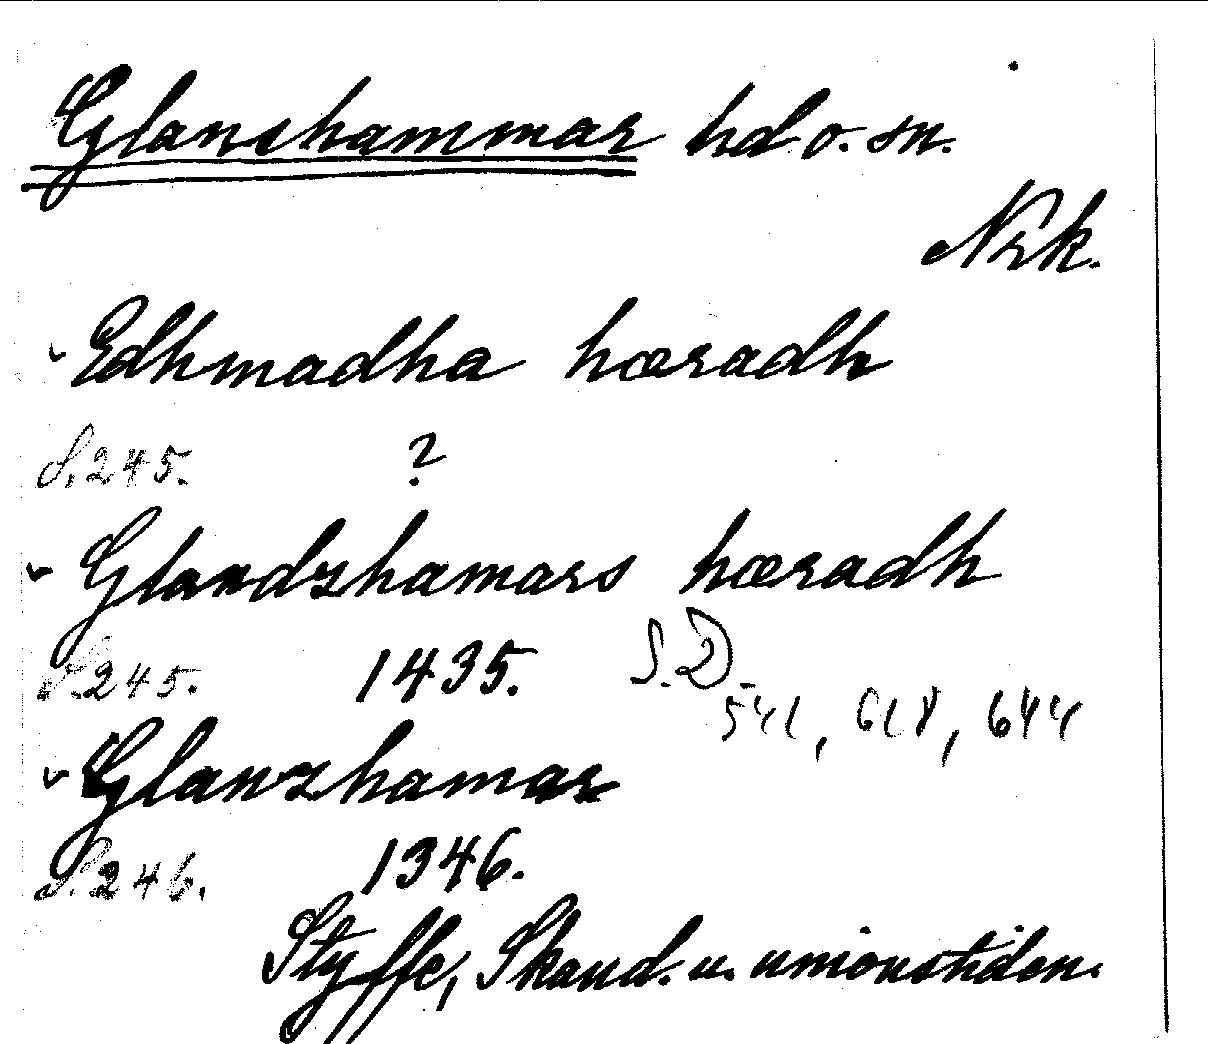 Glanshammar hd o. sn.
Nrk.
Edhmadha hæradh
S. 245. ?
Glandzhamars hæradh
S. 245. 1435. S.D.
541, 618, 644
Glanzhamar
S. 246. 1346.
Styffe, Skand. u. unionstiden.